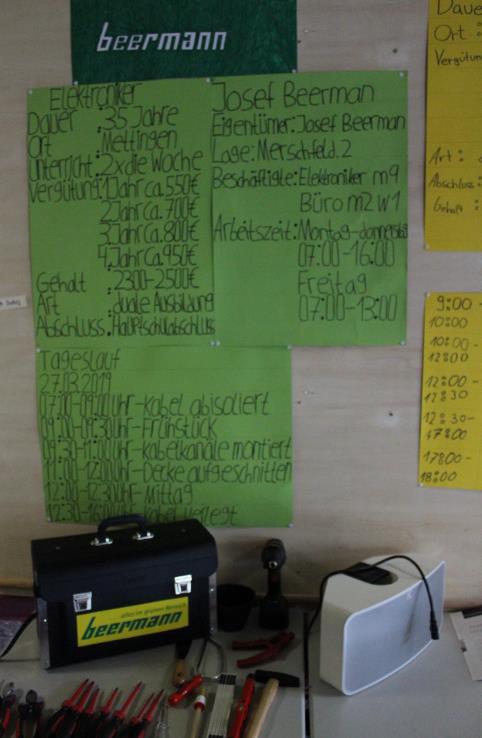 beermann
Elektroniker
Dauer : 3,5 Jahre
Ort : Mettingen
Unterricht : 2x die Woche
Vergütung: 1Jahr ca. 550€
2Jahr ca. 700€
3Jahr ca. 800€
4.Jahr ca. 950€
Gehalt : 2300-2500€
Art : duale Ausbildung
Abschluss: Hauptschulabschluss
Josef Beerman
Eigentümer: Josef Beerman
Lage: Merschfeld. 2
Beschäftigte: Elektroniker m9
Büro m2 w1
Arbeitszeit: Montag-donnerstag
07:00-16:00
Freitag
07:00-13:00
Tageslauf
27.03.2019
07:00-09:00 Uhr-Kabel abisoliert
09:00-09:30Uhr-Frühstück
09:30-11:00Uhr-kabelkanäle montiert
11:00-12:00Uhr-Decke aufgeschnitten
12:00-12:30Uhr-Mittag
12:30-16:00Uhr-Kabel verlegt
Daue
Ort :
Vergütun
Art :
Abschluss:
Gehalt :
9:00 -
10:00
10:00 -
12:00
12:00 -
12:30
12:30-
17:00
17:00 -
18:00
alles im grünen Bereich
beermann